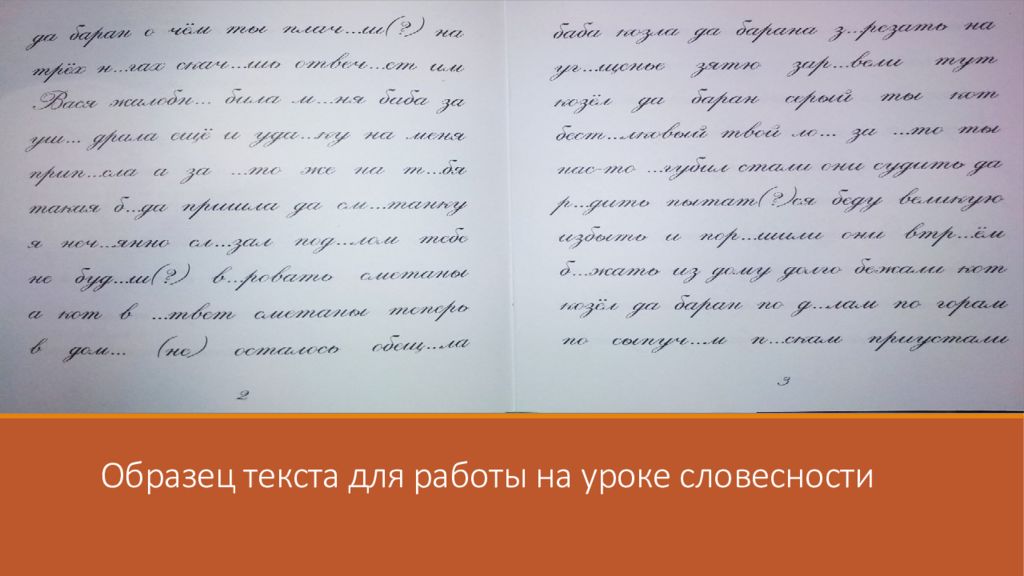 да баран о чём ты плач...ш(?) на
трёх н...гах скач...шь отвеч...ет им
Вася жалобн... била м...ня баба за
уш... драла ещё и уда...ку на меня
прип...сла а за ...то же на т...бя
такая б...да пришла да см...танку
я неч...янно сл...зал под...лом тебе
не буд...ш(?) в...ровать сметаны
а кот в ...твет сметаны теперь
в дом... (не) осталось обещ...ла
2
баба козла да барана з...резать на
уг...щенье зятю зар...вели тут
козёл да баран серый ты кот
бест...лковый твой ло... за ...то ты
нас-то ...губил стали они судить да
р...дить пытат(?)ся беду великую
избыть и пор...шили они втр...ём
б...жать из дому долго бежали кот
козёл да баран по д...лам по горам
по сыпуч...м п...скам приустали
3
Образец текста для работы на уроке словесности